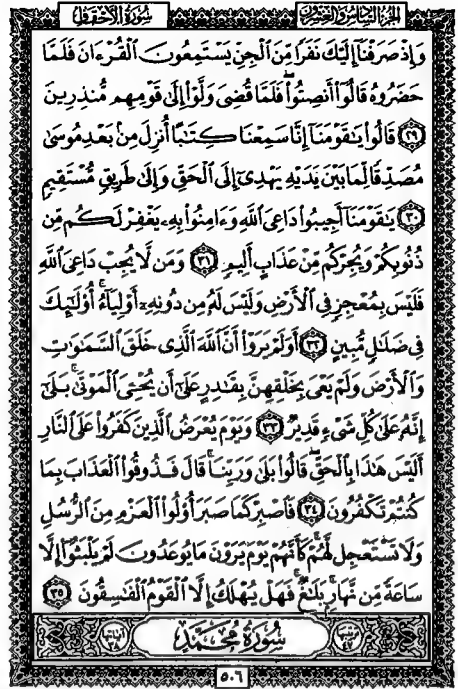 الجزء السادس والعشرون
سورة الأحقاف
وَإِذْ صَرَفْنَآ إِلَيْكَ نَفَرًا مِّنَ ٱلْجِنِّ يَسْتَمِعُونَ ٱلْقُرْءَانَ فَلَمَّا
حَضَرُوهُ قَالُوٓا۟ أَنصِتُوا۟ ۖ فَلَمَّا قُضِىَ وَلَّوْا۟ إِلَىٰ قَوْمِهِم مُّنذِرِينَ
٢٩ قَالُوا۟ يَٰقَوْمَنَآ إِنَّا سَمِعْنَا كِتَٰبًا أُنزِلَ مِنۢ بَعْدِ مُوسَىٰ
مُصَدِّقًا لِّمَا بَيْنَ يَدَيْهِ يَهْدِىٓ إِلَى ٱلْحَقِّ وَإِلَىٰ طَرِيقٍ مُّسْتَقِيمٍ
٣٠ يَٰقَوْمَنَآ أَجِيبُوا۟ دَاعِىَ ٱللَّهِ وَءَامِنُوا۟ بِهِۦ يَغْفِرْ لَكُم مِّن
ذُنُوبِكُمْ وَيُجِرْكُم مِّنْ عَذَابٍ أَلِيمٍ ٣١ وَمَن لَّا يُجِبْ دَاعِىَ ٱللَّهِ
فَلَيْسَ بِمُعْجِزٍ فِى ٱلْأَرْضِ وَلَيْسَ لَهُۥ مِن دُونِهِۦٓ أَوْلِيَآءُ ۚ أُو۟لَٰٓئِكَ
فِى ضَلَٰلٍ مُّبِينٍ ٣٢ أَوَلَمْ يَرَوْا۟ أَنَّ ٱللَّهَ ٱلَّذِى خَلَقَ ٱلسَّمَٰوَٰتِ
وَٱلْأَرْضَ وَلَمْ يَعْىَ بِخَلْقِهِنَّ بِقَٰدِرٍ عَلَىٰٓ أَن يُحْـِۧىَ ٱلْمَوْتَىٰ ۚ بَلَىٰٓ
إِنَّهُۥ عَلَىٰ كُلِّ شَىْءٍ قَدِيرٌ ٣٣ وَيَوْمَ يُعْرَضُ ٱلَّذِينَ كَفَرُوا۟ عَلَى ٱلنَّارِ
أَلَيْسَ هَٰذَا بِٱلْحَقِّ ۖ قَالُوا۟ بَلَىٰ وَرَبِّنَا ۚ قَالَ فَذُوقُوا۟ ٱلْعَذَابَ بِمَا
كُنتُمْ تَكْفُرُونَ ٣٤ فَٱصْبِرْ كَمَا صَبَرَ أُو۟لُوا۟ ٱلْعَزْمِ مِنَ ٱلرُّسُلِ
وَلَا تَسْتَعْجِل لَّهُمْ ۚ كَأَنَّهُمْ يَوْمَ يَرَوْنَ مَا يُوعَدُونَ لَمْ يَلْبَثُوٓا۟ إِلَّا
سَاعَةً مِّن نَّهَارٍۭ ۚ بَلَٰغٌ ۚ فَهَلْ يُهْلَكُ إِلَّا ٱلْقَوْمُ ٱلْفَٰسِقُونَ ٣٥
سُورَةُ مُحَمَّدٍ
٥٠٦